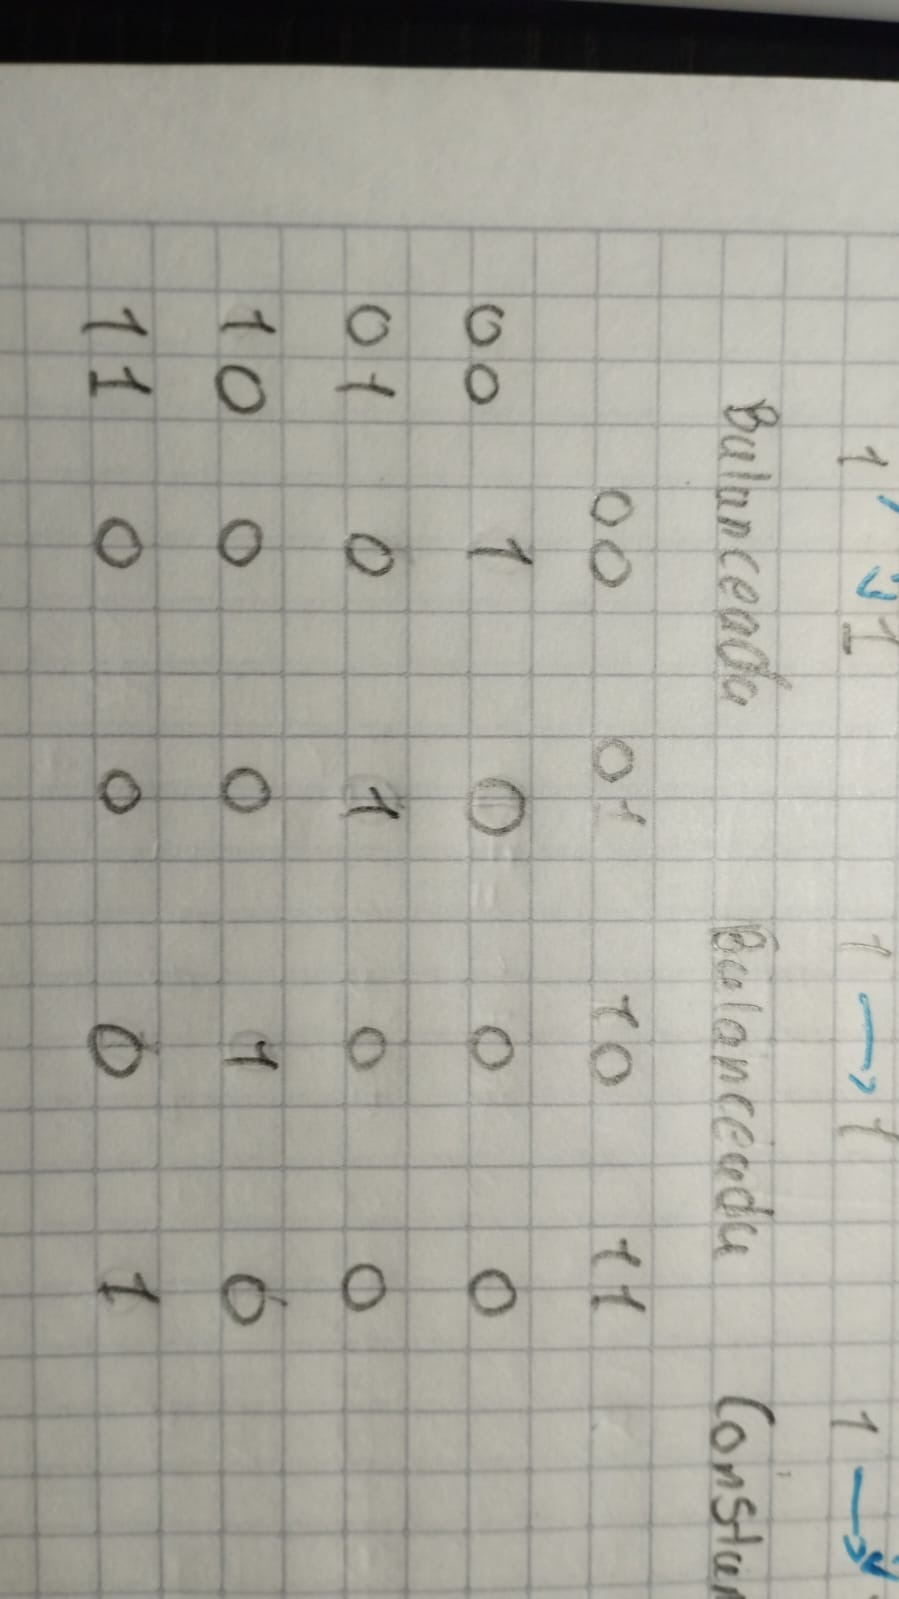 1 → 1 1 → 1 1 →
Balanceada Balanceada Constan
00 01 10 11
00 1 0 0 0
01 0 1 0 0
10 0 0 1 0
11 0 0 0 1